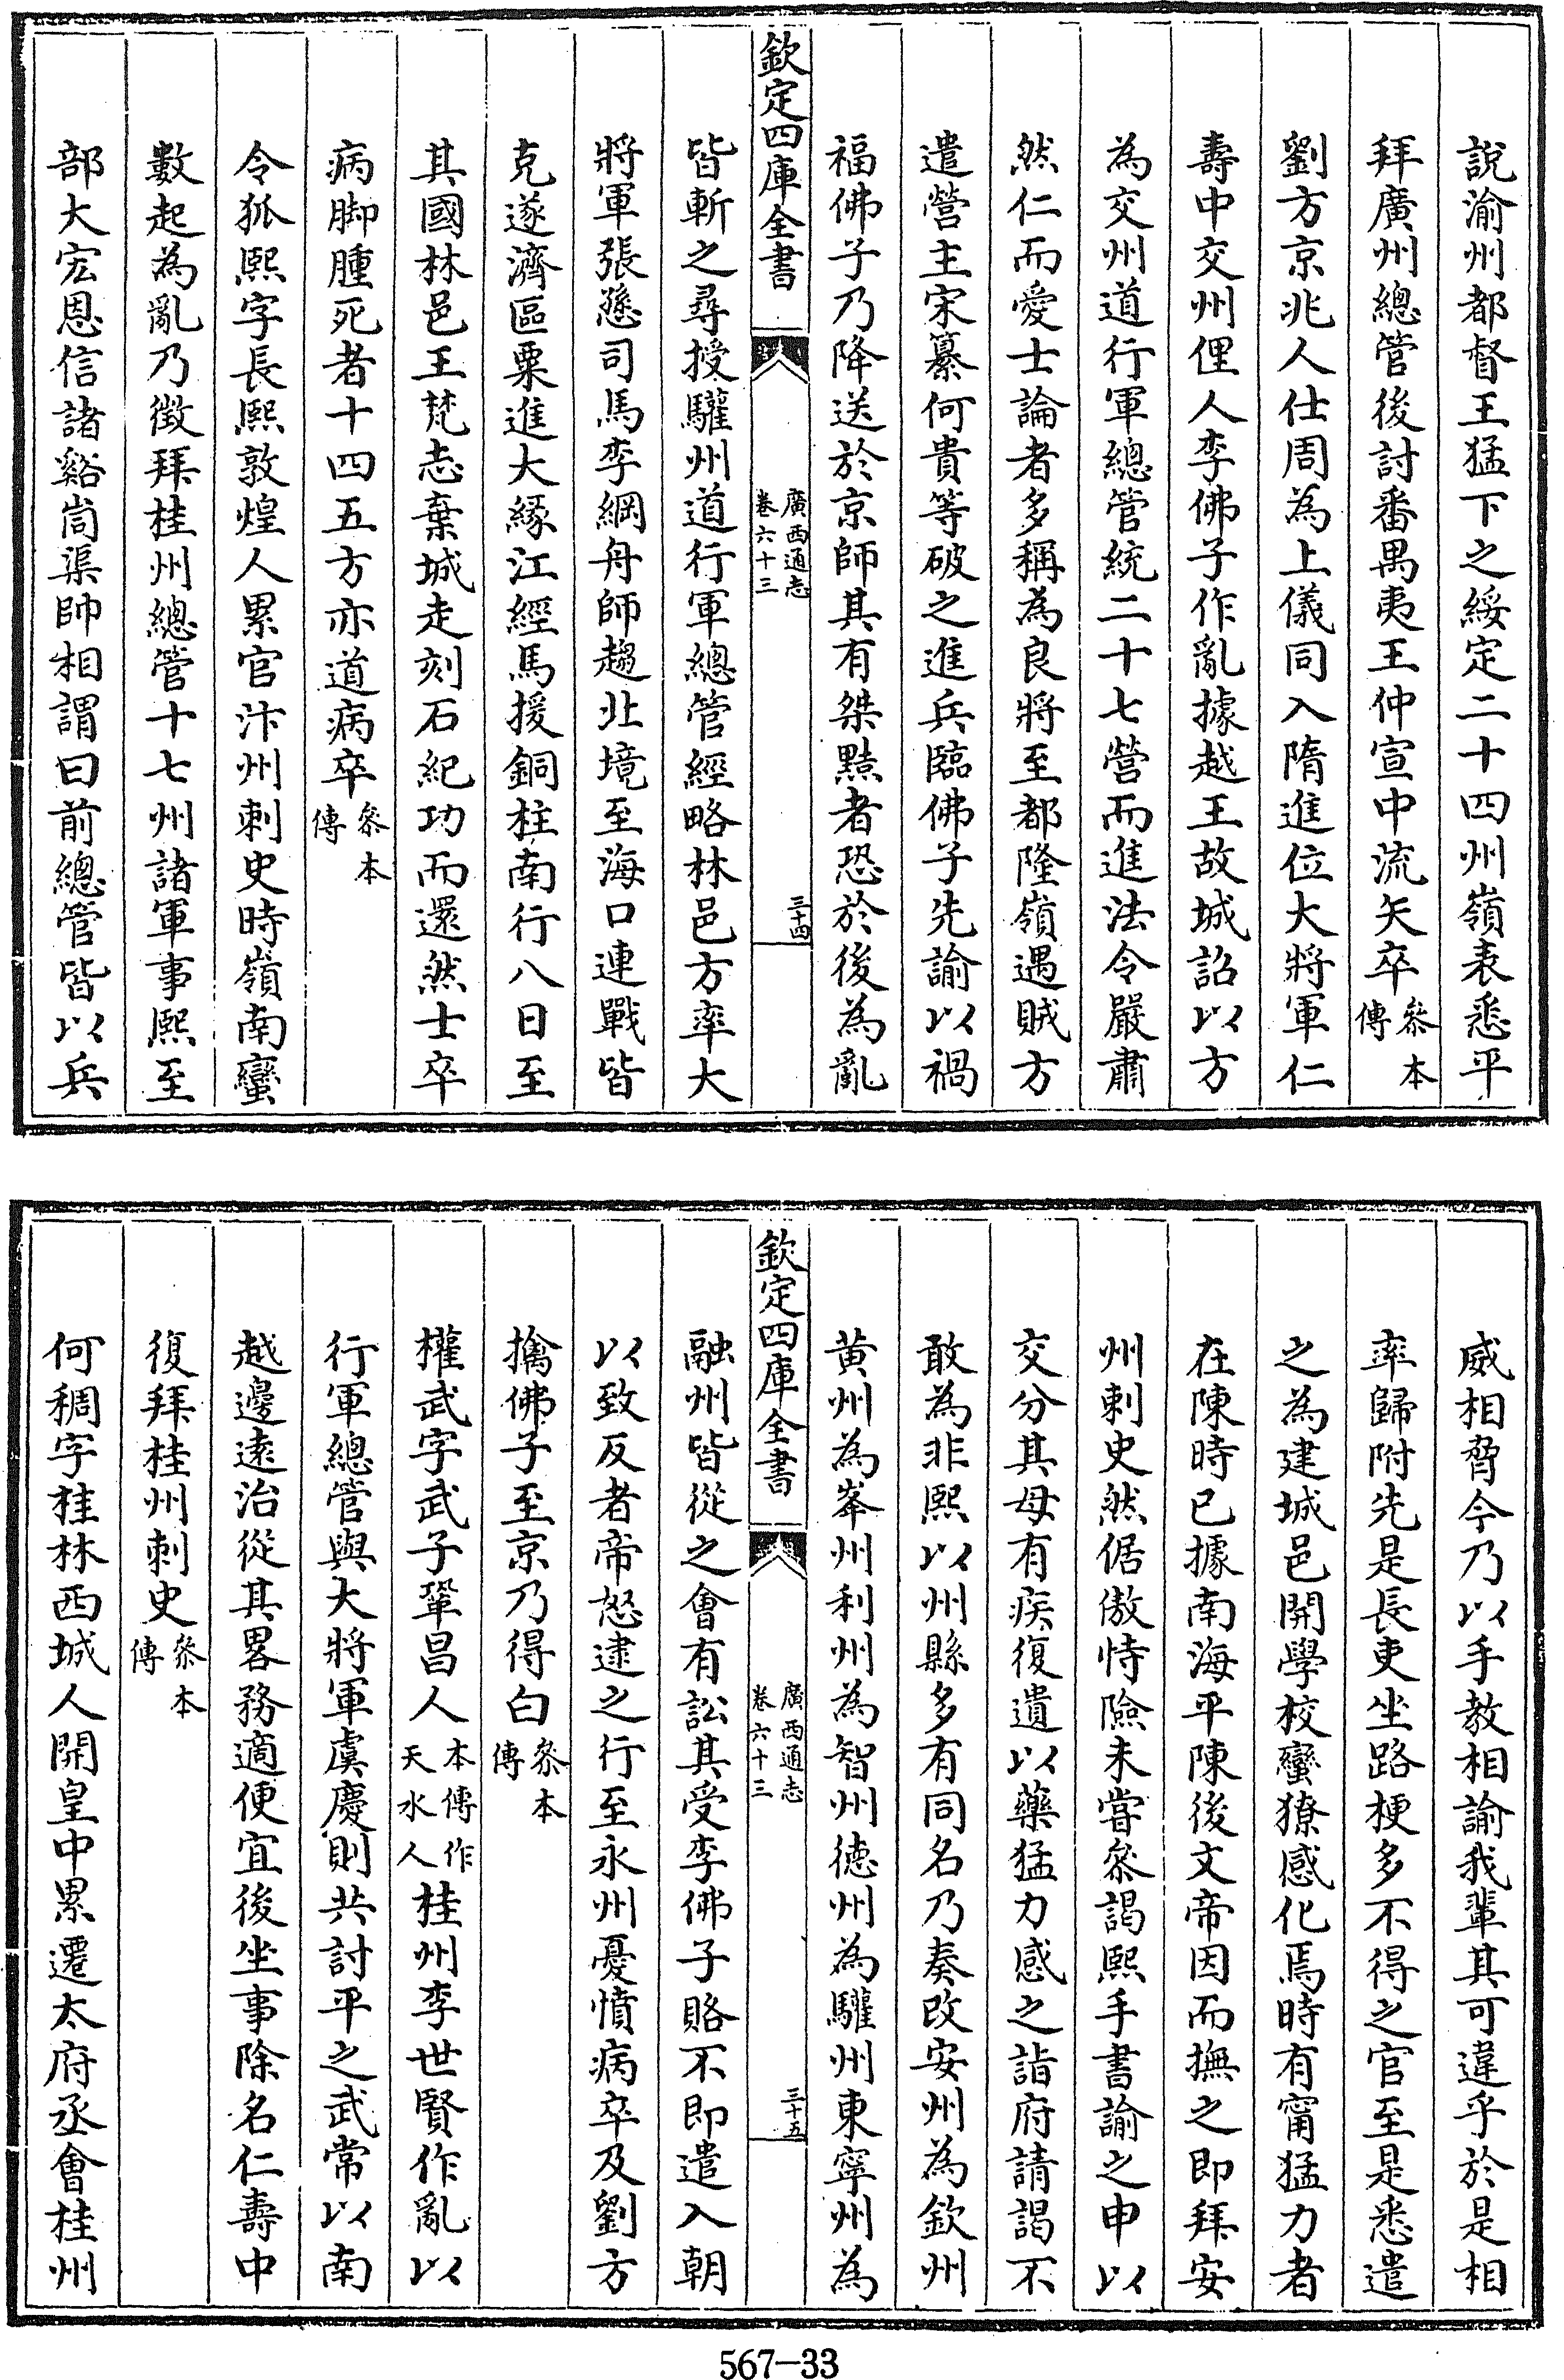 說渝州都督王猛下之綏定二十四州嶺表悉平
拜廣州總管後討番禺夷王仲宣中流矢卒叅本傳
劉方京兆人仕周為上儀同入隋進位大將軍仁
壽中交州俚人李佛子作亂據越王故城詔以方
為交州道行軍總管統二十七營而進法令嚴肅
然仁而愛士論者多稱為良將至都隆嶺遇賊方
遣營主宋纂何貴等破之進兵臨佛子先諭以禍
福佛子乃降送於京師其有桀黠者恐於後為亂
欽定四庫全書
廣西通志
卷六十三
三十四
皆斬之尋授驩州道行軍總管經略林邑方率大
將軍張愻司馬李綱舟師趨北境至海口連戰皆
克遂濟區粟進大緣江經馬援銅柱南行八日至
其國林邑王梵志棄城走刻石紀功而還然士卒
病脚腫死者十四五方亦道病卒叅本傳
令狐熙字長熙敦煌人累官汴州刺史時嶺南蠻
數起為亂乃徵拜桂州總管十七州諸軍事熙至
部大宏恩信諸谿峝渠帥相謂曰前總管皆以兵
威相脅今乃以手教相諭我輩其可違乎於是相
率歸附先是長吏坐路梗多不得之官至是悉遣
之為建城邑開學校蠻獠感化焉時有甯猛力者
在陳時已據南海平陳後文帝因而撫之即拜安
州刺史然倨傲恃險未嘗叅謁熙手書諭之申以
交分其母有疾復遺以藥猛力感之詣府請謁不
敢為非熙以州縣多有同名乃奏改安州為欽州
黃州為峯州利州為智州德州為驩州東寧州為
欽定四庫全書
廣西通志
卷六十三
三十五
融州皆從之會有訟其受李佛子賂不即遣入朝
以致反者帝怒逮之行至永州憂憤病卒及劉方
擒佛子至京乃得白叅本傳
權武字武子鞏昌人本傳作天水人桂州李世賢作亂以
行軍總管與大將軍虞慶則共討平之武常以南
越邊遠治從其畧務適便宜後坐事除名仁壽中
復拜桂州刺史叅本傳
何稠字桂林西城人開皇中累遷太府丞會桂州
567-33